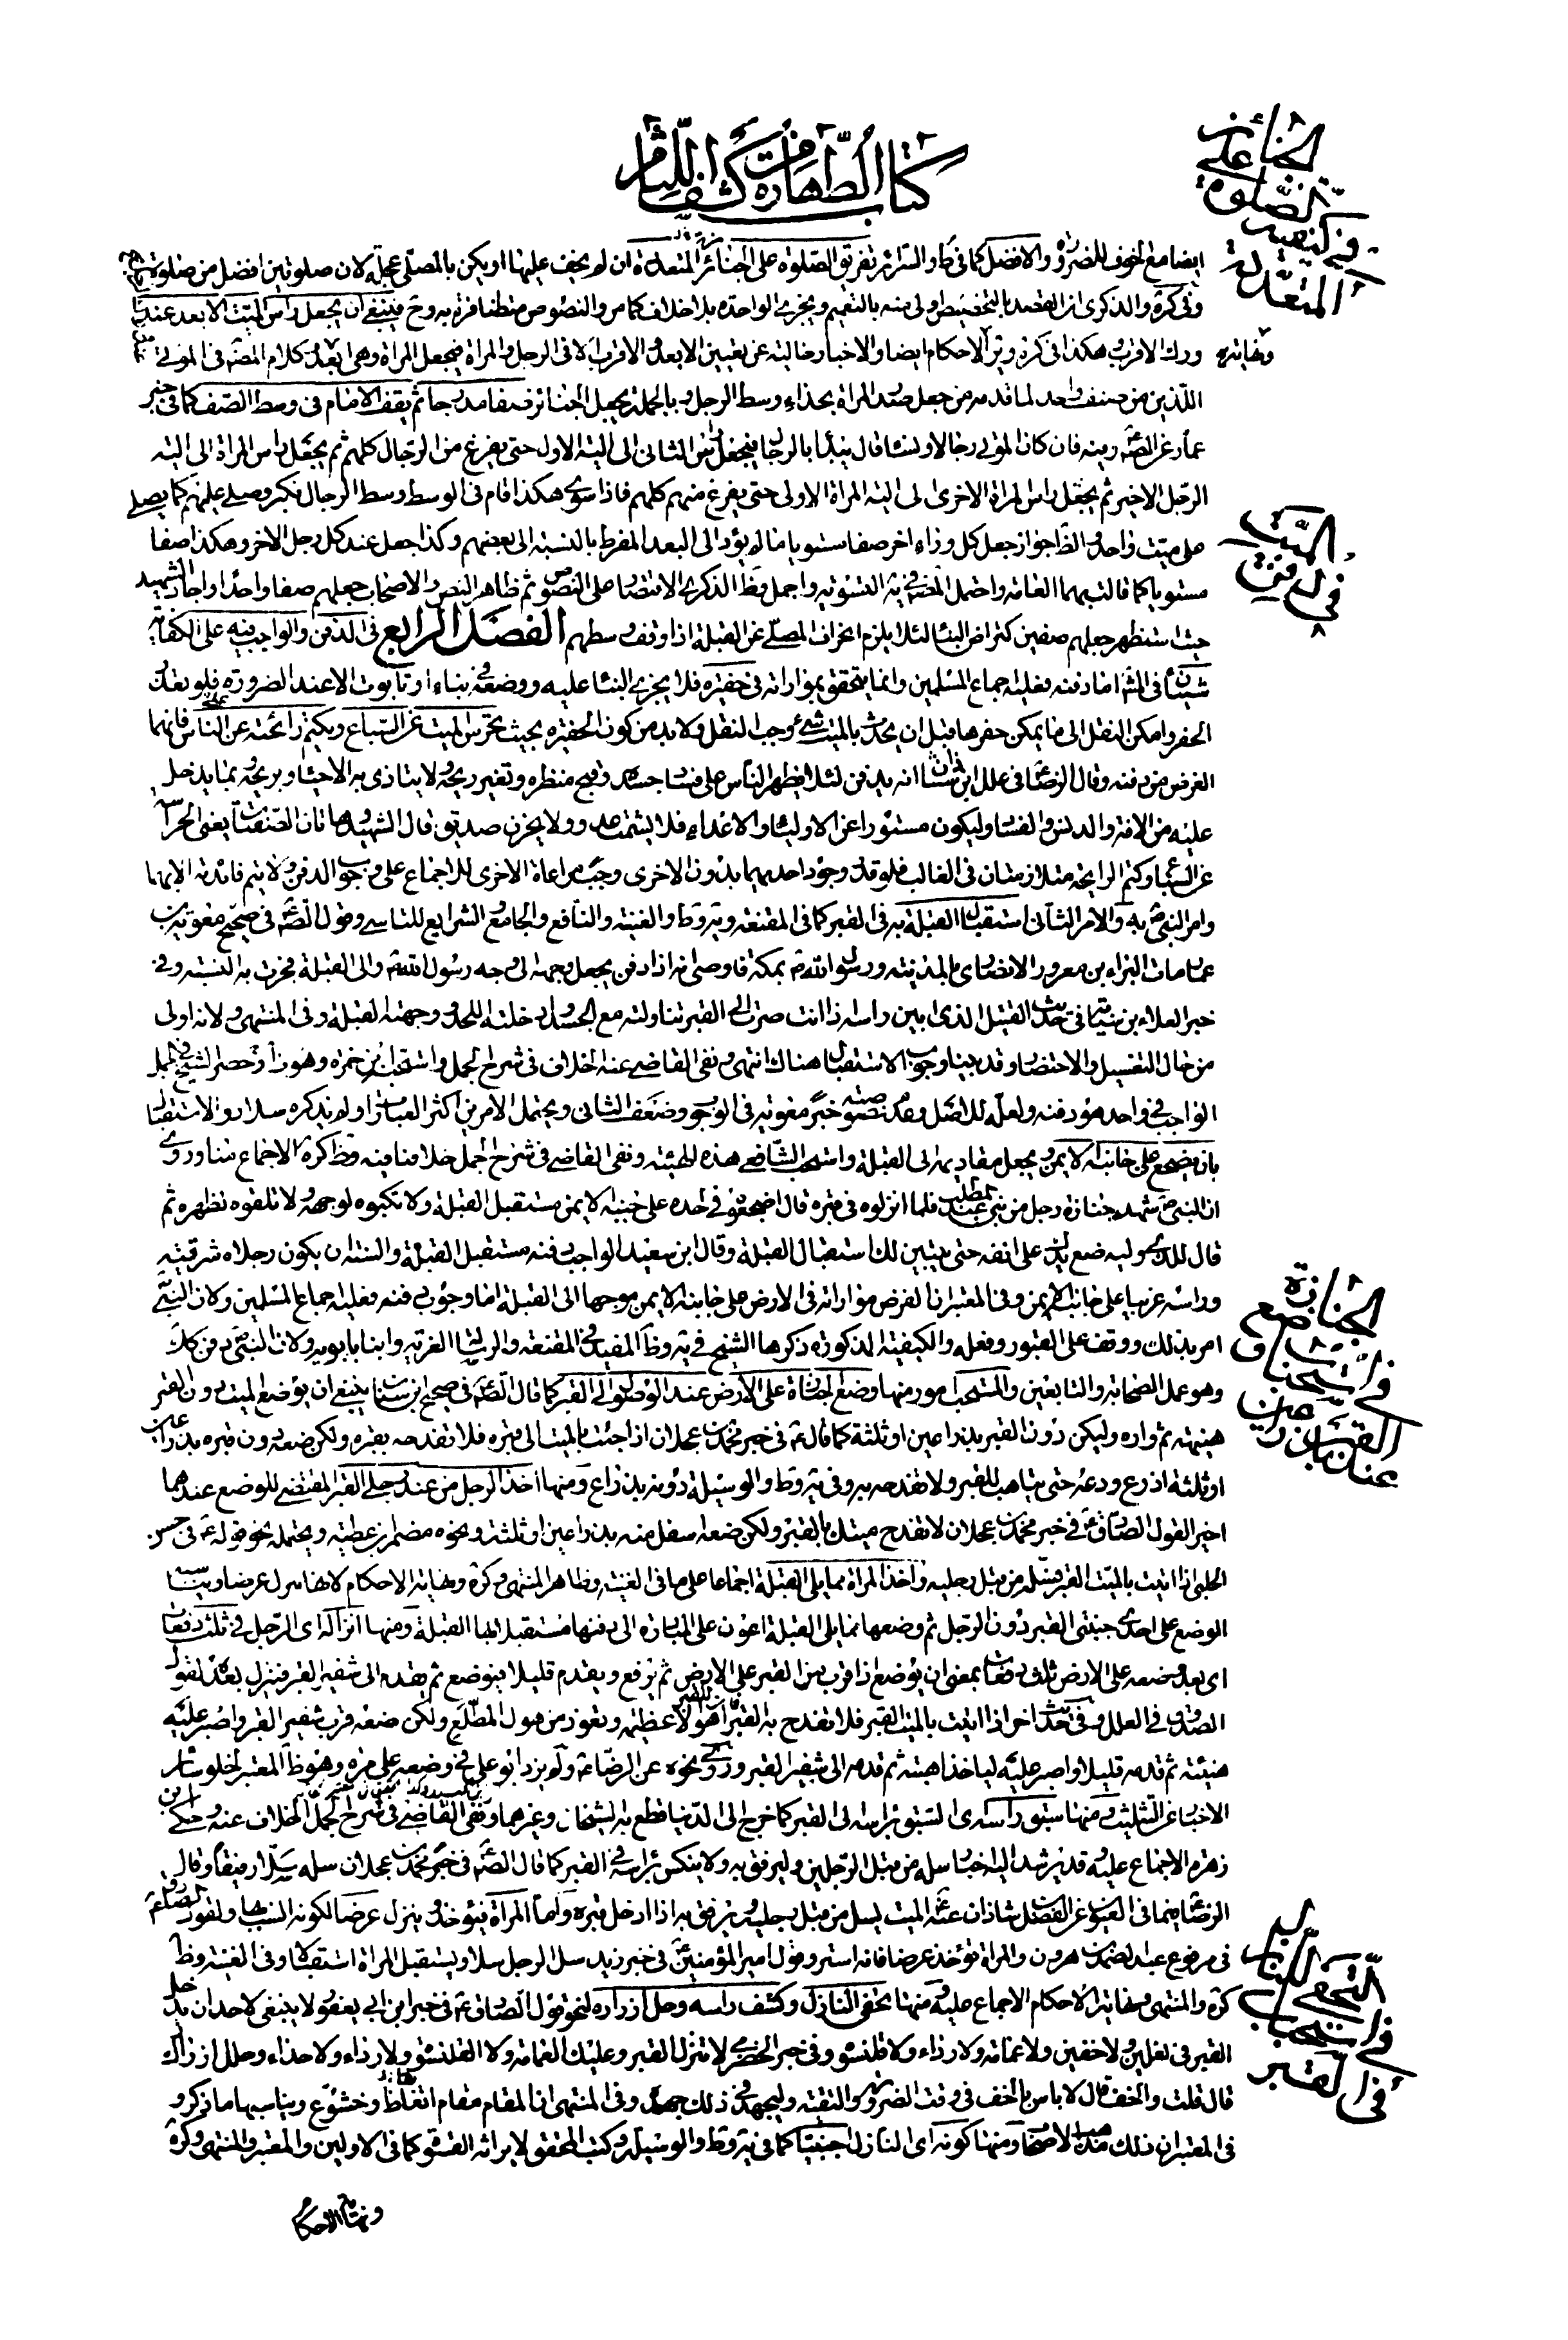 كتاب الطهارة من كشف اللثام
في كيفية الصلوة على الجنائز المتعددة
ايضا مع الخوف للضرورة والافضل كما في ط والسرائر تفريق الصلوة على الجنائز المتعددة ان لم يخف عليها او يكن بالمصلي عجلة لان صلوتين افضل من صلوة
وفي كرة والذكرى ان القصد بالتخصيص اولى منه بالتعميم ويجزئ الواحدة بلا خلاف كما مر والنصوص متظافرة به وح فينبغي ان يجعل راس الميت الابعد عند
ونهاية
ورك الاقرب وهكذا في كرة ونهاية الاحكام ايضا والاخبار خالية عن تعيين الابعد والاقرب الا في الرجل والمراة فيجعل المراة وهي ابعد وكلام المص في الموتى
اللذين من صنف واحد لما قدمه من جعل صدر المراة بحذاء وسط الرجل وبالجملة يجعل الجنائز صفا مدرجا ثم يقف الامام في وسط الصف كما في خبر
عمار عن الصادق فان كان الموتى رجالا ونساء قال يبدا بالرجال فيجعل راس الثاني الى الية الاول حتى يفرغ من الرجال كلهم ثم يجعل راس المراة الى الية
الرجل الاخير ثم يجعل راس المراة الاخرى الى الية المراة الاولى حتى يفرغ منهم كلهم فاذا سوى هكذا قام في الوسط وسط الرجال فكبر وصلى عليهم كما يصلي
على ميت واحد والظ جواز جعل كل وراء اخر صفا مستويا ما لم يؤد الى البعد المفرط بالنسبة الى بعضهم وكذا جعل عند كل رجل الاخر وهكذا صفا
في دفن الميت
مستويا كما قالت بهما العامة واحتمل المص في ية التسوية واجمل وظ الذكرى الاقتصار على النصوص ثم ظاهر النص والاصحاب جعلهم صفا واحدا واجاز الشهيد
حيث استظهر جعلهم صفين كتراص البناء لئلا يلزم انحراف المصلي عن القبلة اذا وقف وسطهم الفصل الرابع في الدفن والواجب فيه على الكفاية
شيئان الاول دفنه فعليه اجماع المسلمين وانما يتحقق بمواراته في حفيرة فلا يجزئ البناء عليه ووضعه في بناء او تابوت الا عند الضرورة فلو تعذر
الحفر وامكن النقل الى ما يمكن حفرها قبل ان يحدث بالميت شئ وجب النقل ولا بد من كون الحفيرة بحيث تحرس الميت عن السباع وتكتم رائحته عن الناس فانهما
الغرض من دفنه وقال الرضا في علل ابن شاذان انه يدفن لئلا يظهر الناس على فساد جسده وقبح منظره وتغير ريحه ولا يتاذى به الاحياء بريحه وبما يدخل
عليه من الافة والدنس والفساد وليكون مستورا عن الاولياء والاعداء فلا يشمت عدو ولا يحزن صديق قال الشهيد وهاتان الصفتان يعني الحراسة
عن السباع وكتم الرايحة متلازمتان في الغالب فلو قدر وجود احديهما بدون الاخرى وجب مراعاة الاخرى للاجماع على وجوب الدفن ولا يتم فائدته الا بهما
وامر النبي ص به والامر الثاني استقبال القبلة به في القبر كما في المقنعة وية وط والغنية والنافع والجامع والشرايع للتاسي وقول الصادق في صحيح معوية بن
عمار مات البراء بن معرور الانصاري بالمدينة ورسول الله ص بمكة فاوصى انه اذا دفن يجعل وجهه الى وجه رسول الله ص والى القبلة فجرت به السنة وفي
خبر العلاء بن سيابة في حديث القتيل الذي ابين راسه اذا انت صرت الى القبر تناولته مع الجسد وادخلته اللحد ووجهته القبلة وفي المنتهى ولانه اولى
من حال التغسيل والاحتضار وقد بينا وجوب الاستقبال هناك انتهى ونفى القاضي عنه الخلاف في شرح الجمل واستحبه ابن حمزة وهو ظ اذ حصر الشيخ في الجمل
الواجب في واحد هو دفنه ولعله للاصل وعدم نصوصية خبر معوية في الوجوب وضعف الثاني ويحتمل الامرين اكثر العبارات اولم يذكره سلار والاستقبال
بان يضجع على جانبه الايمن ويجعل مقاديمه الى القبلة واستحب الشافعي هذه الهيئة ونفى القاضي في شرح الجمل خلافنا فيه وظ كرة الاجماع منا وروى
ان النبي ص شهد جنازة رجل من بني عبد المطلب فلما انزلوه في قبره قال اضجعوه في لحده على جنبه الايمن مستقبل القبلة ولا تكبوه لوجهه ولا تلقوه لظهره ثم
قال للذي وليه ضع يدك على انفه حتى يتبين لك استقبال القبلة وقال ابن سعيد الواجب دفنه مستقبل القبلة والسنة ان يكون رجلاه شرقية
وراسه غربيا على جانبه الايمن وفي المعتبر ان الفرض مواراته في الارض على جانبه الايمن موجها الى القبلة اما وجوب دفنه فعليه اجماع المسلمين ولان النبي
امر بذلك ووقف على القبور وفعله والكيفية المذكورة ذكرها الشيخ في ية وط والمفيد في المقنعة والرسالة الغرية وابنا بابويه ولان النبي ص دفن كذلك
في استحباب وضع الجنازة عند القبر بذراعين
وهو عمل الصحابة والتابعين والمستحب امور منها وضع الجنازة على الارض عند الوصول الى القبر كما قال الصادق في صحيح ابن سنان ينبغي ان يوضع الميت دون القبر
هنيهة ثم واره وليكن دون القبر بذراعين او ثلثة كما قال ع في خبر محمد بن عجلان اذا جئت بالميت الى قبره فلا تفدحه بقبره ولكن ضعه دون قبره بذراعين
او ثلثة اذرع ودعه حتى يتاهب للقبر ولا تفدحه به وفي ية وط والوسيلة دونه بذراع ومنها اخذ الرجل من عند رجلي القبر المقتضي للوضع عندهما
اخيرا لقول الصادق في خبر محمد بن عجلان لا تفدح ميتك بالقبر ولكن ضعه اسفل منه بذراعين او ثلثة ونحوه مضمر ابن عطية ويحتمله نحو قوله ع في حسن
الحلبي اذا اتيت بالميت القبر فسله من قبل رجليه واخذ المراة مما يلي القبلة اجماعا على ما في الغنية وظاهر المنتهى وكرة ونهاية الاحكام لانها تنزل عرضا
الوضع على احدى جنبتي القبر دون الرجل ثم وضعها مما يلي القبلة اعون على المبادرة الى دفنها مستقبلا بها القبلة ومنها انزاله اي الرجل في ثلث دفعات
اي بعد وضعه على الارض ثلث دفعات بمعنى ان يوضع اذا قرب من القبر على الارض ثم يرفع ويقدم قليلا فيوضع ثم يقدم الى شفير القبر فينزل بعده لقول
الصدوق في العلل وفي حديث اخر اذا اتيت بالميت القبر فلا تفدح به القبر فان للقبر اهوالا عظيمة وتعوذ من هول المطلع ولكن ضعه قرب شفير القبر واصبر عليه
هنيئة ثم قدمه قليلا واصبر عليه لياخذ اهبته ثم قدمه الى شفير القبر وروى نحوه عن الرضا ع ولم يزد ابو علي في وضعه على مرة وهو ظ المعتبر لخلو سائر
الاخبار عن التثليث ومنها سبق راسه اي السبق براسه الى القبر كما خرج الى الدنيا قطع به الشيخان وغيرهما ونفى القاضي في شرح الجمل الخلاف عنه وحكى ابن
زهرة الاجماع عليه وقد يرشد اليه اخبار سله من قبل الرجلين وليرفق به ولا ينكس براسه في القبر كما قال الصادق في خبر محمد بن عجلان سله سلا رفيقا وقال
الرضا فيما في العيون عن الفضل بن شاذان عنه الميت يسل من قبل رجليه ويرفق به اذا ادخل قبره واما المراة فيؤخذ وينزل عرضا لكونه انسب بها ولقول الصادق
في مرفوع عبد الصمد بن هرون والمراة تؤخذ عرضا فانه استر وقول امير المؤمنين في خبر زيد سل الرجل سلا ويستقبل المراة استقبالا وفي الغنية وظ
في استحباب التحفي للنازل في القبر
كرة والمنتهى ونهاية الاحكام الاجماع عليه ومنها تحفي النازل وكشف راسه وحل ازراره لنحو قول الصادق ع في خبر ابن ابي يعفور لا ينبغي لاحد ان يدخل
القبر في نعلين ولا خفين ولا عمامة ولا رداء ولا قلنسوة وفي خبر الحضرمي لا تنزل القبر وعليك العمامة ولا القلنسوة ولا رداء ولا حذاء وحلل ازرارك
قال قلت والخف قال لا باس بالخف في وقت الضرورة والتقية وليجهد في ذلك جهده وفي المنتهى ان المقام مقام اتعاظ وخشوع ويناسبهما ما ذكر و
في المعتبر ان ذلك مذهب الاصحاب ومنها كونه اي النازل اجنبيا كما في ية وط والوسيلة وكتب المحقق لايراثه القسوة كما في الاولين والمعتبر والمنتهى وكرة
ونهاية الاحكام